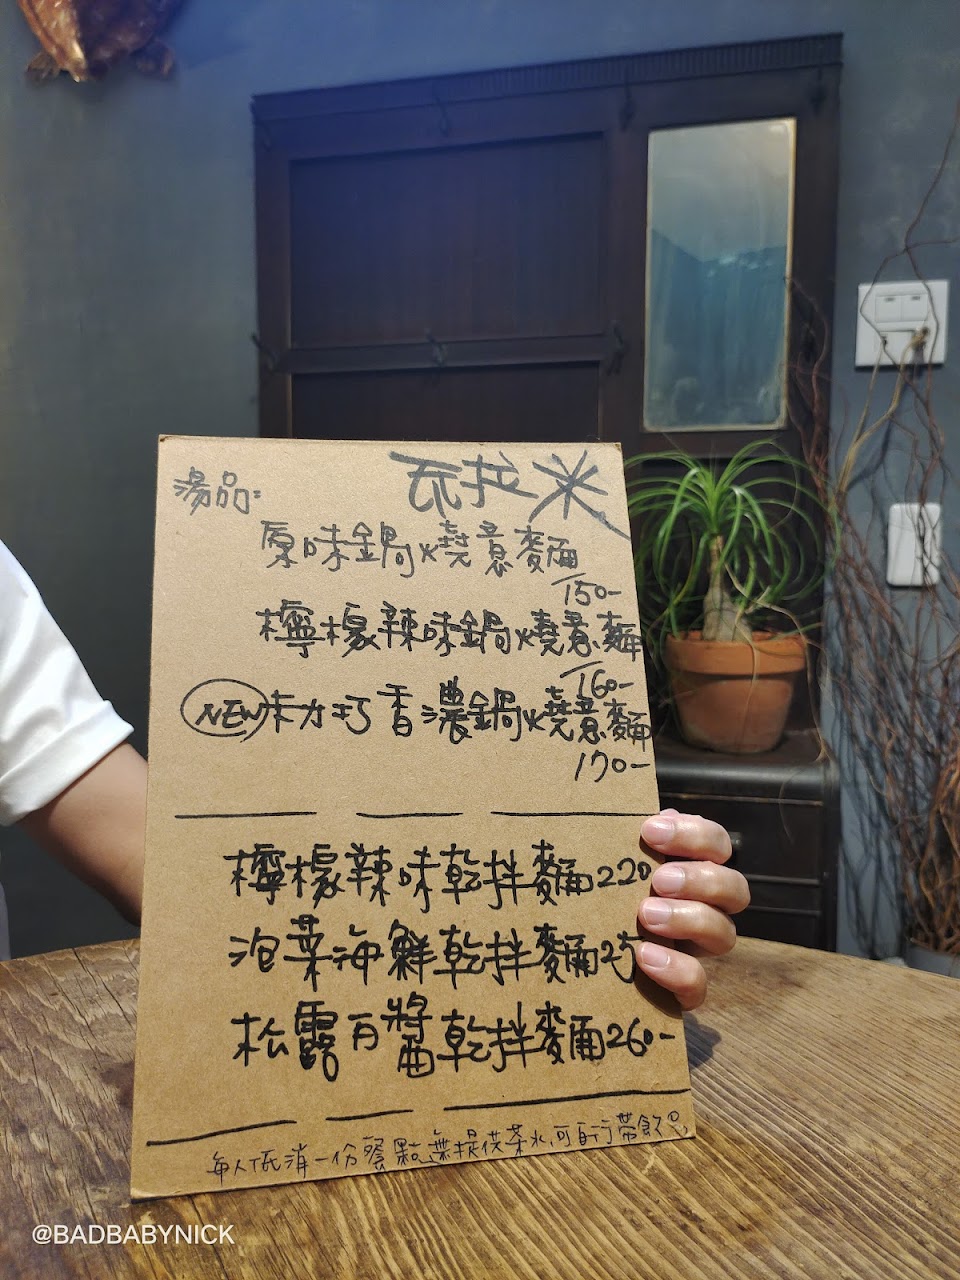 瓦拉米
湯品:
原味鍋燒意麵
150-
檸檬辣味鍋燒意麵
160-
NEW 卡力巧香濃鍋燒意麵
170-
檸檬辣味乾拌麵220
泡菜海鮮乾拌麵25
松露白醬乾拌麵260-
每人低消一份餐點,無提供茶水,可自行帶飲品
@BADBABYNICK